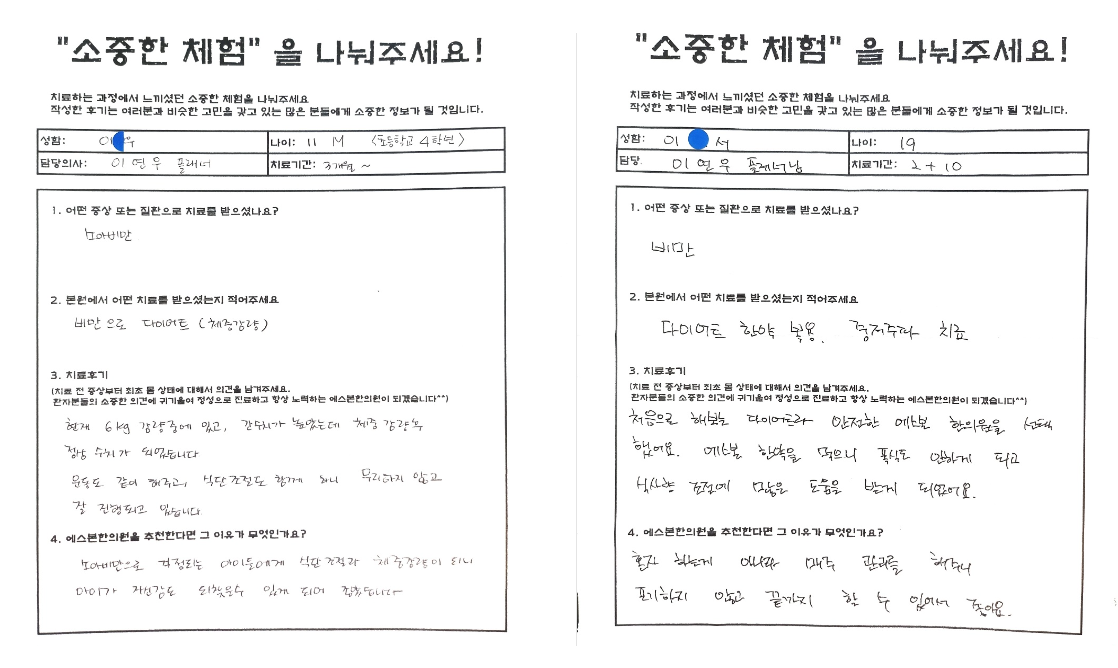 "소중한 체험" 을 나눠주세요!
치료하는 과정에서 느끼셨던 소중한 체험을 나눠주세요
작성한 후기는 여러분과 비슷한 고민을 갖고 있는 많은 분들에게 소중한 정보가 될 것입니다.
성함: 이 우 나이: 11 M (초등학교 4학년)
담당의사: 이연우 플래너 치료기간: 3개월 ~
1. 어떤 증상 또는 질환으로 치료를 받으셨나요?
소아비만
2. 본원에서 어떤 치료를 받으셨는지 적어주세요
비만으로 다이어트 (체중감량)
3. 치료후기
(치료 전 증상부터 최초 몸 상태에 대해서 의견을 남겨주세요.
환자분들의 소중한 의견에 귀기울여 정성으로 진료하고 항상 노력하는 에스본한의원이 되겠습니다^^)
현재 6kg 감량중에 있고, 간수치가 높았는데 체중 감량후
정상 수치가 되었습니다
운동도 같이 해주고, 식단조절도 함께 하니 무리하지 않고
잘 진행되고 있습니다
4. 에스본한의원을 추천한다면 그 이유가 무엇인가요?
소아비만으로 걱정되는 아이들에게 식단조절과 체중감량이 되니
아이가 자신감도 되찾을수 있게 되어 좋습니다
"소중한 체험" 을 나눠주세요!
치료하는 과정에서 느끼셨던 소중한 체험을 나눠주세요
작성한 후기는 여러분과 비슷한 고민을 갖고 있는 많은 분들에게 소중한 정보가 될 것입니다.
성함: 이 서 나이: 19
담당 이연우 플래너님 치료기간: 2 + 10
1. 어떤 증상 또는 질환으로 치료를 받으셨나요?
비만
2. 본원에서 어떤 치료를 받으셨는지 적어주세요
다이어트 한약 복용. 중저주파 치료
3. 치료후기
(치료 전 증상부터 최초 몸 상태에 대해서 의견을 남겨주세요.
환자분들의 소중한 의견에 귀기울여 정성으로 진료하고 항상 노력하는 에스본한의원이 되겠습니다^^)
처음으로 해보는 다이어트라 안전한 에스본 한의원을 선택
했어요. 에스본 한약을 먹으니 폭식도 안하게 되고
식사량 조절에 많은 도움을 받게 되었어요.
4. 에스본한의원을 추천한다면 그 이유가 무엇인가요?
혼자 하는게 아니라 매주 관리를 해주니
포기하지 않고 끝까지 할 수 있어서 좋아요.